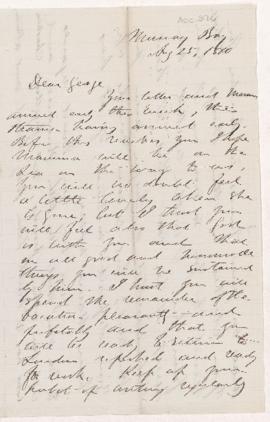 ACC 576
Murray Bay
Aug 25, 1880
Dear George
Your letter and Mamma
arrived early this the
Steamer having arrived early.
Before this reaches you I hope
Mamma will be on the
sea on the way to us,
You will no doubt feel
a little lonely when she
is gone, but I trust you
will feel also that God
is with you and that
in all good and honourable
things you will be sustained
by him. I trust you will
spend the remainder of the
vacation pleasantly and
profitably and that you
will be ready to return to
London refreshed and ready
for work. Keep up your
habit of writing regularly